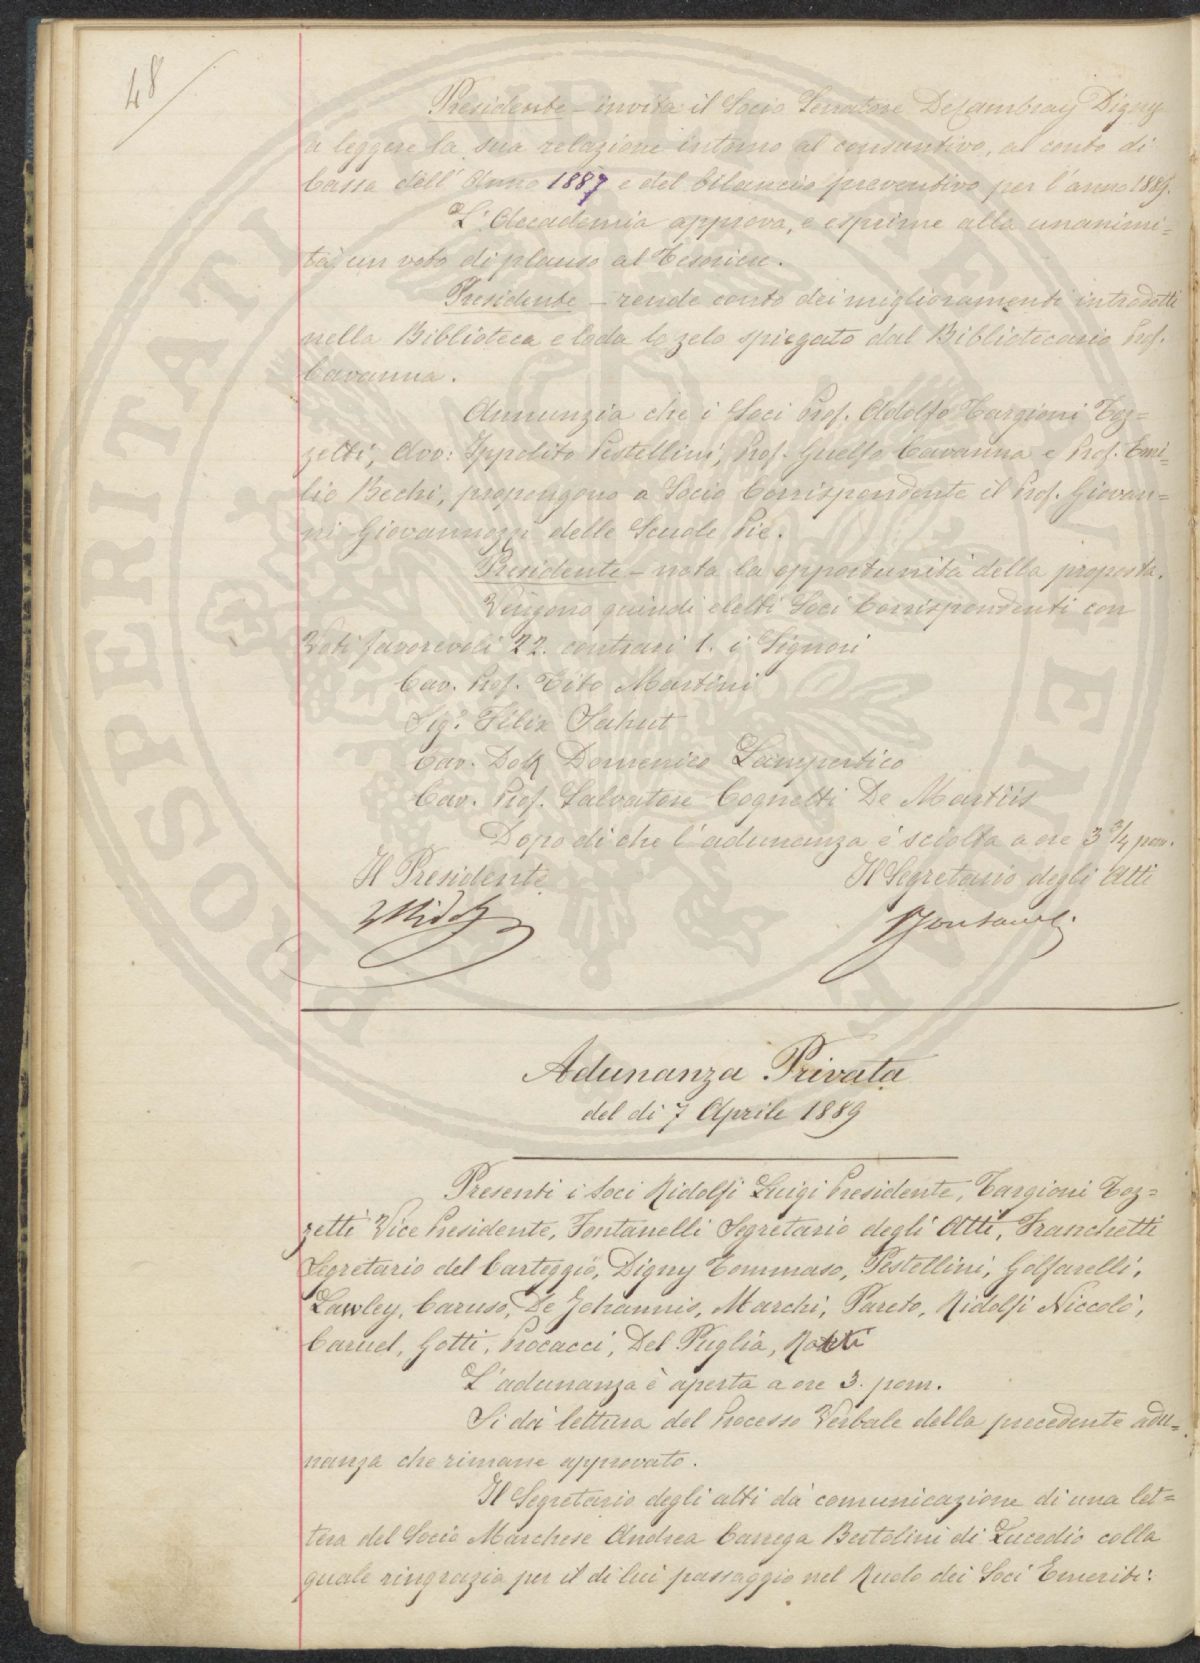 48
Presidente – invita il Socio Senatore De Cambray Digny
a leggere la sua relazione intorno al consuntivo, al conto di
Cassa dell'Anno 1887 e del Bilancio preventivo per l'anno 1889.
L'Accademia approva, e esprime alla unanimi=
tà, un voto di plauso al Tesoriere.
Presidente – rende conto dei miglioramenti introdotti
nella Biblioteca e loda lo zelo spiegato dal Bibliotecario Prof.
Cavanna.
Annunzia che i Soci Prof. Adolfo Targioni Toz=
zetti, Avv: Ippolito Pestellini, Prof. Guelfo Cavanna e Prof. Emi=
lio Bechi, propongono a Socio Corrispondente il Prof. Giovan=
ni Giovannozzi delle Scuole Pie.
Presidente – nota la opportunità della proposta.
Vengono quindi eletti Soci Corrispondenti con
Voti favorevoli 22. contrari 1. i Signori
Cav. Prof. Tito Martini
Sig.r Félix Sahut
Cav. Dott Domenico Lampertico
Cav. Prof. Salvatore Cognetti De Martiis
Dopo di che l'adunanza è sciolta a ore 3 3/4 pom.
Il Presidente Il Segretario degli Atti
LRidolfi Fontanelli
Adunanza Privata
del dì 7 Aprile 1889
Presenti i Soci Ridolfi Luigi Presidente, Targioni Toz=
zetti Vice Presidente, Fontanelli Segretario degli Atti, Franchetti
Segretario del Carteggio, Digny Tommaso, Pestellini, Golfarelli,
Lawley, Caruso, De Johannis, Marchi, Pareto, Ridolfi Niccolò,
Caruel, Gotti, Procacci, Del Puglia,
L'adunanza è aperta a ore 3. pom.
Si dà lettura del Processo Verbale della precedente adu=
nanza che rimane approvato.
Il Segretario degli atti dà comunicazione di una let=
tera del Socio Marchese Andrea Carrega Bertolini di Lucedio colla
quale ringrazia per il di lui passaggio nel Ruolo dei Soci Emeriti:
PROSPERITATI PUBLICAE AUGENDAE